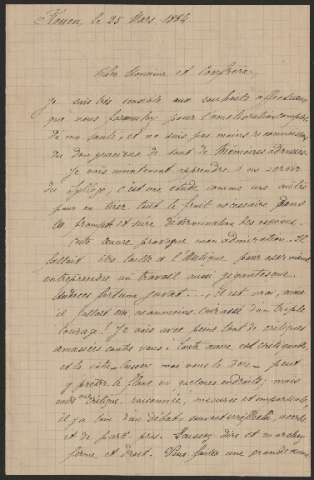 Rouen, le 25 Mars 1884.
Cher Monsieur et Confrère,
Je suis très sensible aux souhaits affectueux
que vous formulez pour l'amélioration
de ma santé, et ne suis pas moins reconnaissant
du don gracieux de tant de Mémoires adressés.
Je vais maintenant apprendre à me servir
du c'est une étude comme une autre
pour en tirer tout le fruit nécessaire dans
la prompte et sûre détermination des espèces.
Cette œuvre provoque mon admiration. Il
fallait être taillé à l'antique pour oser
entreprendre un travail aussi gigantesque
Audaces fortuna juvat.... Il est vrai, mais
il fallait être, néanmoins, cuirassé d'un triple
courage! Je vois avec peine tant de critiques
amassées contre vous! Toute œuvre est critiquable,
et le côté
y prêter le flanc en quelques endroits; mais
entre une critique raisonnée, mesurée et impartiale,
il y a loin d'un débat souvent
et de parti pris. Laissez dire et marchez
ferme et droit. Vous faites une grande œuvre